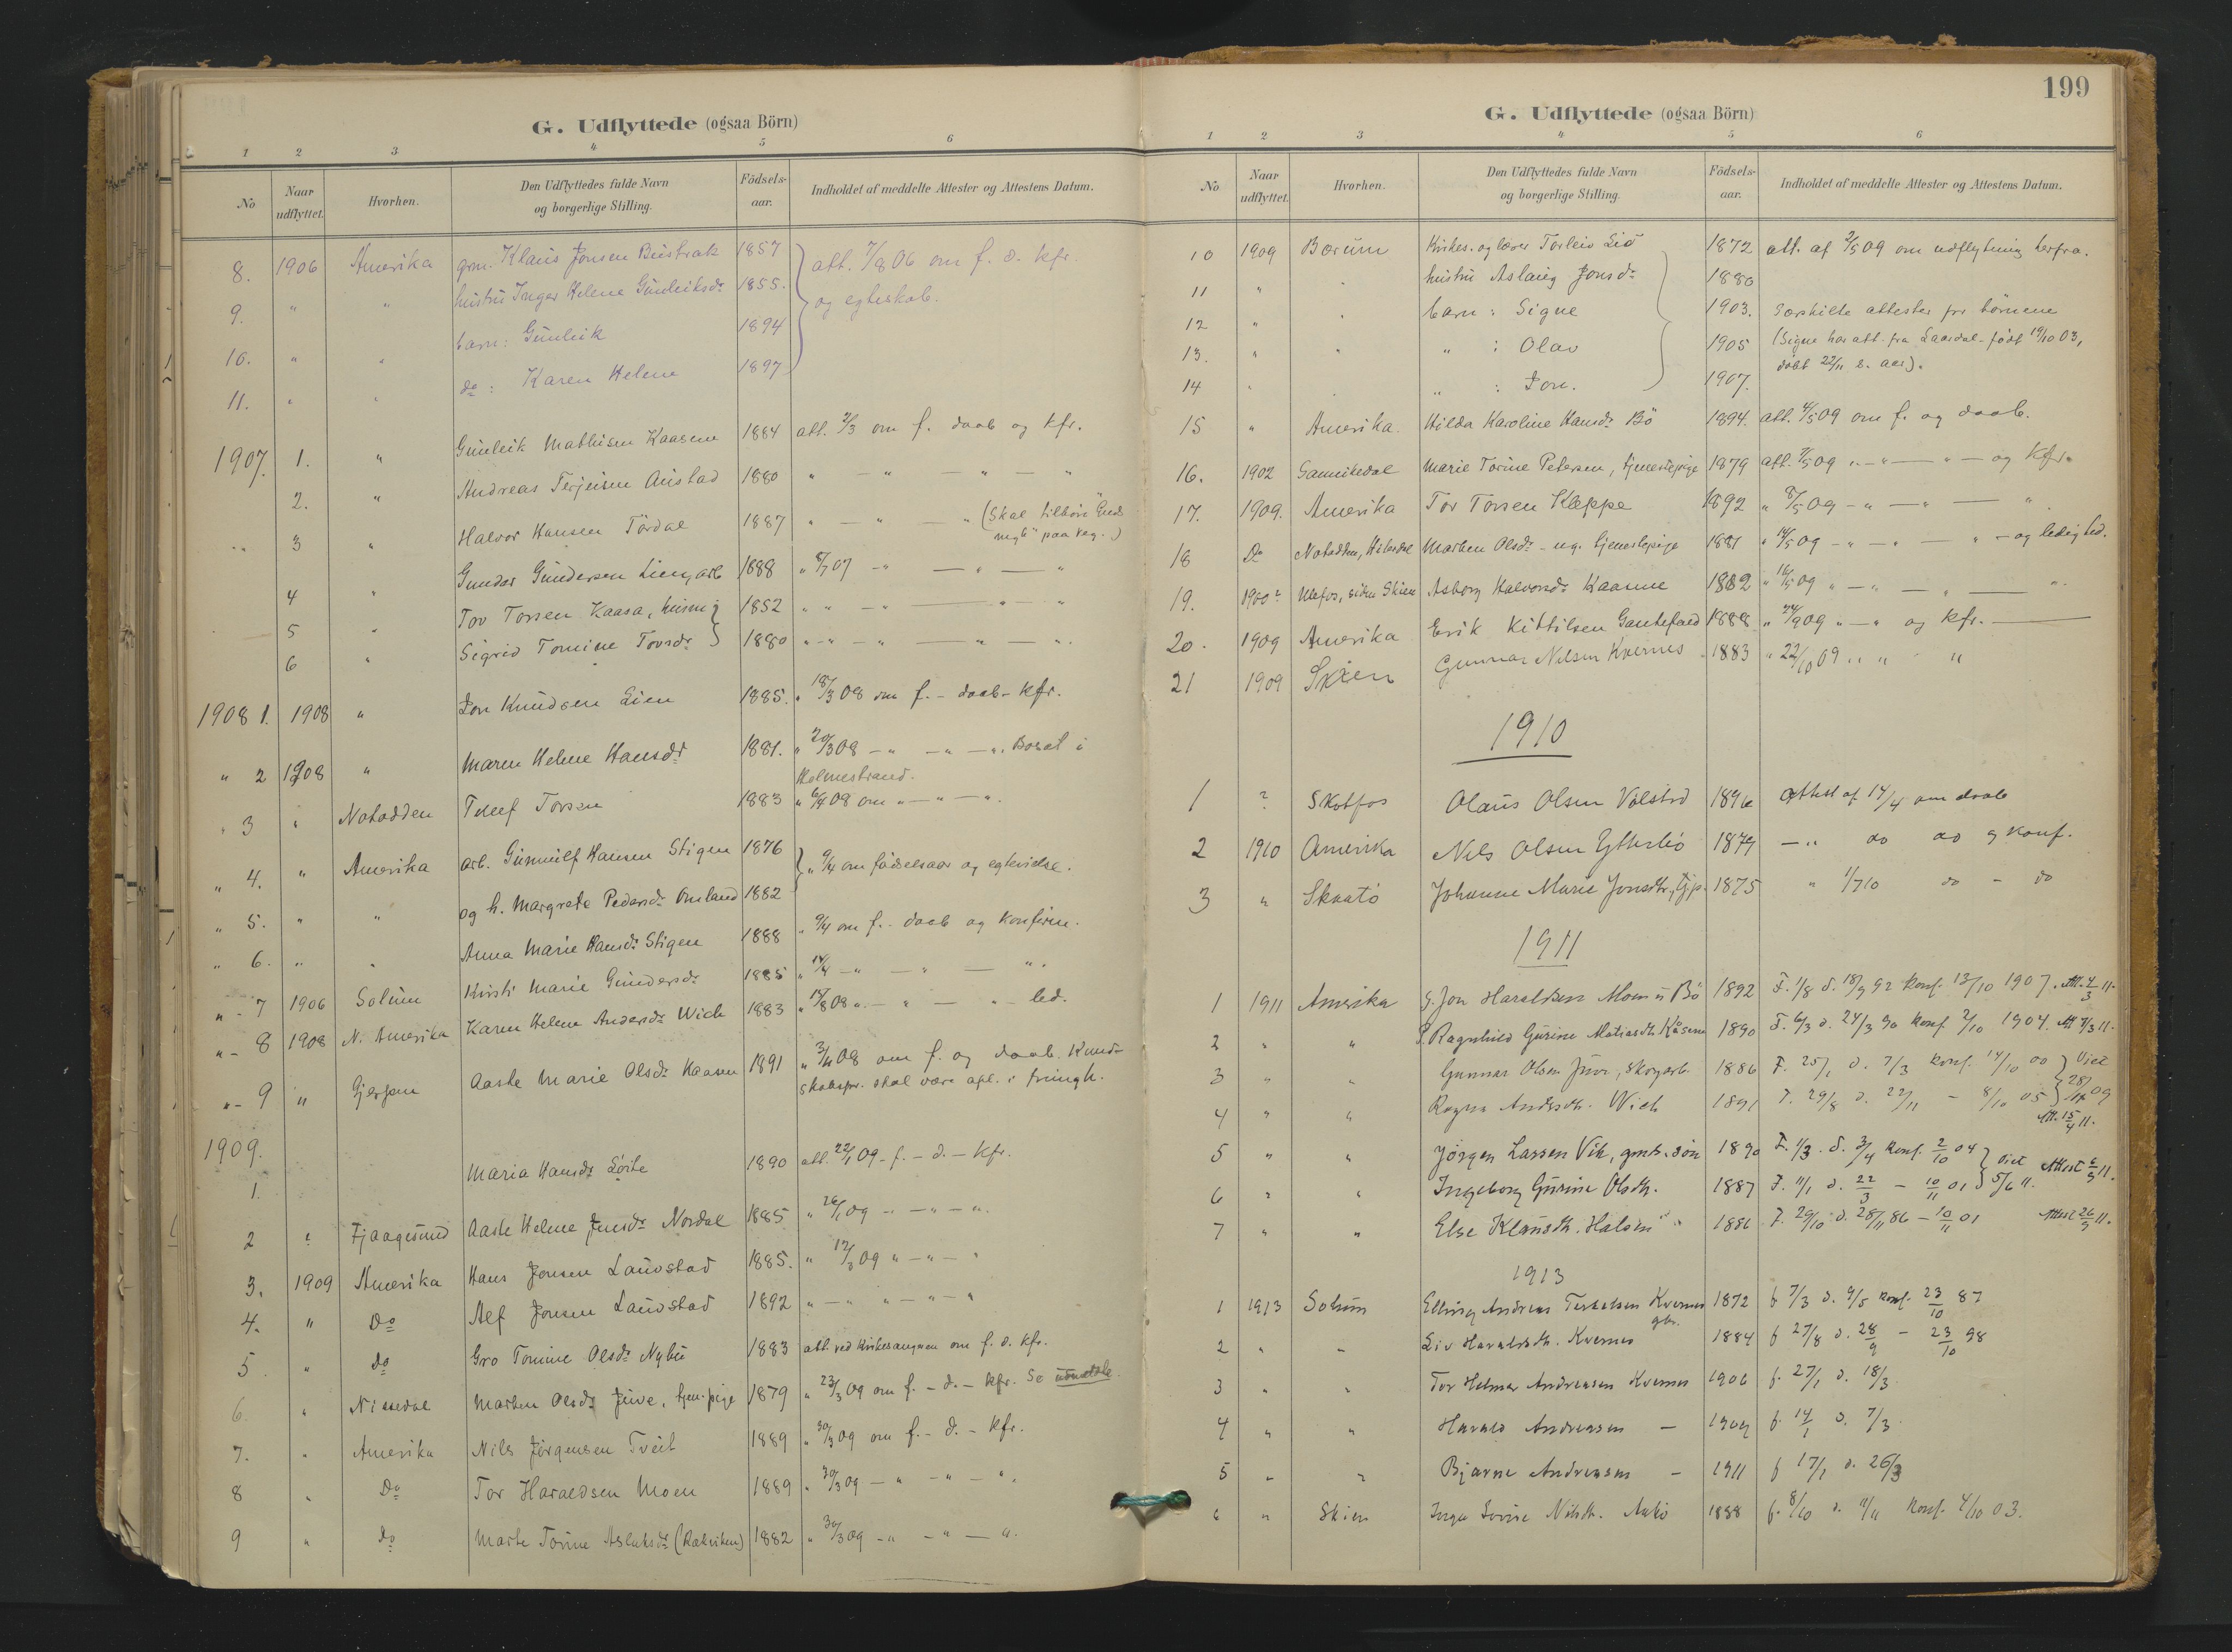 G. Udflyttede (ogsaa Börn)
1 2 3 4 5 6
No Naar udflyttet. Hvorhen. Den Udflyttedes fulde Navn og borgerlige Stilling. Födsels-aar. Indholdet af meddelte Attester og Attestens Datum.
8. 1906 Amerika grm. Klaus Jensen 1857 att. 7/8 06 om f. d. kfr.
9. " " hustru Inger Helene Gunleiksdr 1855. og egteskab.
10. " " barn: Gunleik 1894
11. " " do: Karen Helene 1897
1907. 1. " Gunleik Mathisen Kaasene 1884 att. 2/3 om f. daab og kfr.
2. " Andreas Terjeisen Austad 1880 " — " — " — "
3 " Halvor Hansen Tørdal 1887 " — " — " (Skal tilhøre "Guds
megl" paa Reg.)
4 " Gunder Gundersen Lien, arb 1888 " 8/7 07 - " — " — "
5 " Tov Torsen Kaasa, husm. 1852 " " - " — " - "
6 " Sigrid Tomine Tovsdr 1880 " - " - " — " — ".
1908 1. 1908 " Jon Knudsen Lien 1885. " 18/3 08 om f. - daab - kfr.
" 2 1908 " Maren Helene Hansdr 1881. " 20/3 08 - " - " - ". Bosat i
Holmestrand.
" 3 " Notodden Tellef Torsen 1883 " 6/4 08 om " - " - ".
" 4. " Amerika arb. Gunnulf Hansen Stigen 1876 " 9/4 om fødselsaar og egtevielse.
" 5. " " og h. Margrete Pedersdr Omland 1882
" 6. " " Anna Marie Hansdr Stigen 1888 " 9/4 om f. - daab og konfirm.
" - 7 1906 Solum Kirsti Marie Gundersdr 1885 " 14/4 - " — " — ".
" - 8 1908 N. Amerika Karen Helene Andersdr Wich 1883 " 14/8 08 ". - " — " - led.
" - 9 " Gjerpen Aaste Marie Olsdr Kaasen 1891 " 3/11 08 om f. og daab. Kund-
skabspr. skal være afl. i
1909.
1. Maria Hansdr 1890 att. 22/1 09 - f. - d. - kfr.
2 " Fjaagesund Aaste Helene Jensdr Nordal 1885 " 26/1 09 - " - " - ".
3. 1909 Amerika Hans Jensen Laudstad 1885. " 12/3 09 " - " - "
4. " Do Alf Jensen Laudstad 1892 " — " " - " - "
5. " do Gro Tomine Olsdr Nybu 1883 att. ved Kirkesangeren om f. d. kfr.
6. " Nissedal Marthea Olsdr Juve, tjen.pige 1879 " 23/3 09 om f. - d. - kfr. Se
7. " Amerika Nils Jørgensen Tveit 1889 " 30/3 09 om f. - d. - kfr.
8 " Do Tor Haraldsen Moen 1889 " 30/3 09 - " - " - ".
9 " do Marte Torine Aslaksdr 1882 " 30/3 09 - " - " — ".
199
G. Udflyttede (ogsaa Börn)
1 2 3 4 5 6
No Naar udflyttet. Hvorhen. Den Udflyttedes fulde Navn og borgerlige Stilling. Födsels-aar. Indholdet af meddelte Attester og Attestens Datum.
10 1909 Bærum Kirkes. og lærer Torleiv Lid 1872 att. af 2/5 09 om udflytning herfra.
11 " " hustru Aslaug Jonsdr 1880
12 " " barn : Signe 1903. Særskilte attester for børnene
13. " " " : Olav 1905 (Signe har att. fra Laardal - født 19/10 03,
14 " " : Jon. 1907. døbt 22/11 s. aar).
15 " Amerika. Hilda Karoline Hansdr Bö 1894. att. 4/5 09 om f. og daab.
16. 1902 Sannikedal Marie Torine Petersen, tjenestepige 1879 att. 7/5 09 " - " — " — og kfr.
17. 1909. Amerika Tov Torsen Kleppe 1892 " 8/5 09 - " — " — "
18 Do Notodden, Marthea Olsdr - ug. tjenestepige 1881 " 14/5 09 - " - " — " - og ledighed.
19. 1900? Ulefos, siden Skien Asborg Halvorsdr Kaasene 1882 " 16/5 09 " — " — " — ".
20. 1909 Amerika Erik Kittilsen Gautefald 1888 " 24/9 09 " — " og kfr. —
21 1909 Skien Gunnar Nilsen Kvernes 1883 " 22/10 09 " " "
1910
1 ? Skotfos Olaus Olsen 1896 Attest af 14/4 om daab
2 1910 Amerika Nils Olsen Ytterbö 1879 - " do do og konf.
3 " Skaatö Johanne Marie Jonsdtr., tjp. 1875 " 1/7 10 do - do
1911
1 1911 Amerika G. Jon Haraldsen Moen u. Bö 1892 F. 1/8 d. 18/9 92 konf. 13/10 1907. Att. 4/3 11.
2 " " P. Ragnhild Gurine Matiasdtr. Kåsene 1890 F. 6/3 d. 24/3 90 konf. 2/10 1904. Att. 4/3 11.
3 " " Gunnar Olsen Juve, skogarb. 1886 F. 25/1 d. 7/3 konf. 14/10 00 Viet
4 " " Ragna Andersdtr. Wich 1891 F. 29/8 d. 22/11 - 8/10 05 28/12 09
Att. 15/4 11.
5 " " Jörgen Larsen Vik, gmb. sön 1890 F. 1/3. d. 3/4 konf. 2/10 04 Viet Attest 6/9 11.
6 " " Ingeborg Gurine Olsdtr. 1887 F. 11/1 d. 22/3 - 10/11 01 5/6 11.
7 " " Else Klausdtr. Halsen 1886 F. 29/10 d. 28/11 86 - 10/11 01 Attest 26/9 11.
1913
1 1913 Solum Elling Andreas Terkelsen Kvernes gbr. 1872 f 7/3 d. 9/5 konf. 23/10 87
2 " " Liv Haraldsdtr. Kvernes 1884 f 27/8 d. 28/9 - 23/10 98
3 " " Tor Helmer Andreasen Kvernes 1906 f. 27/1 d. 18/3.
4 " " Harald Andreasen — 1909 f. 14/1 d. 7/3.
5 " " Bjarne Andreasen — 1911 f 17/1 d. 26/3
6 " Skien Inga Nilsdtr. 1888 f. 8/10 d. 11/11 konf. 4/10 03.